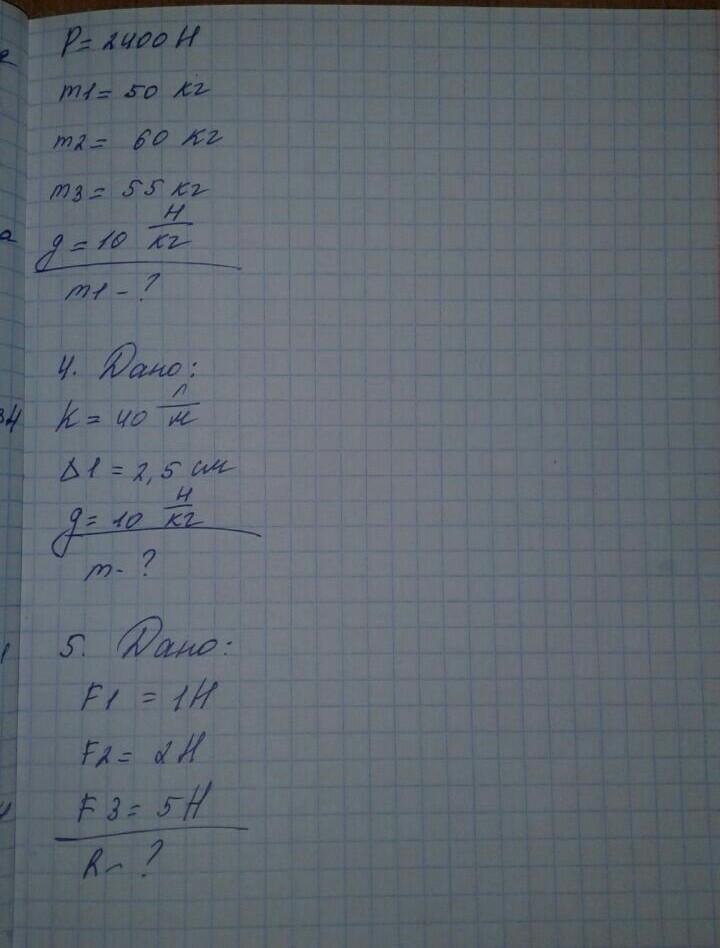 P = 2400 Н
m1 = 50 кг
m2 = 60 кг
m3 = 55 кг
g = 10 Н/кг
m1 - ?
4. Дано:
K = 40 Н/м
Δl = 2,5 см
g = 10 Н/кг
m - ?
5. Дано:
F1 = 1Н
F2 = 2Н
F3 = 5Н
R - ?